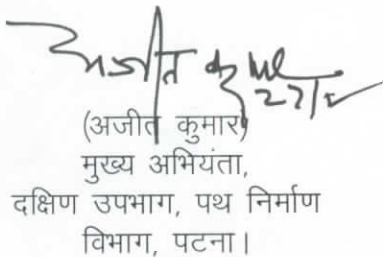 अजीत कुमार
27/2
(अजीत कुमार)
मुख्य अभियंता,
दक्षिण उपभाग, पथ निर्माण
विभाग, पटना।